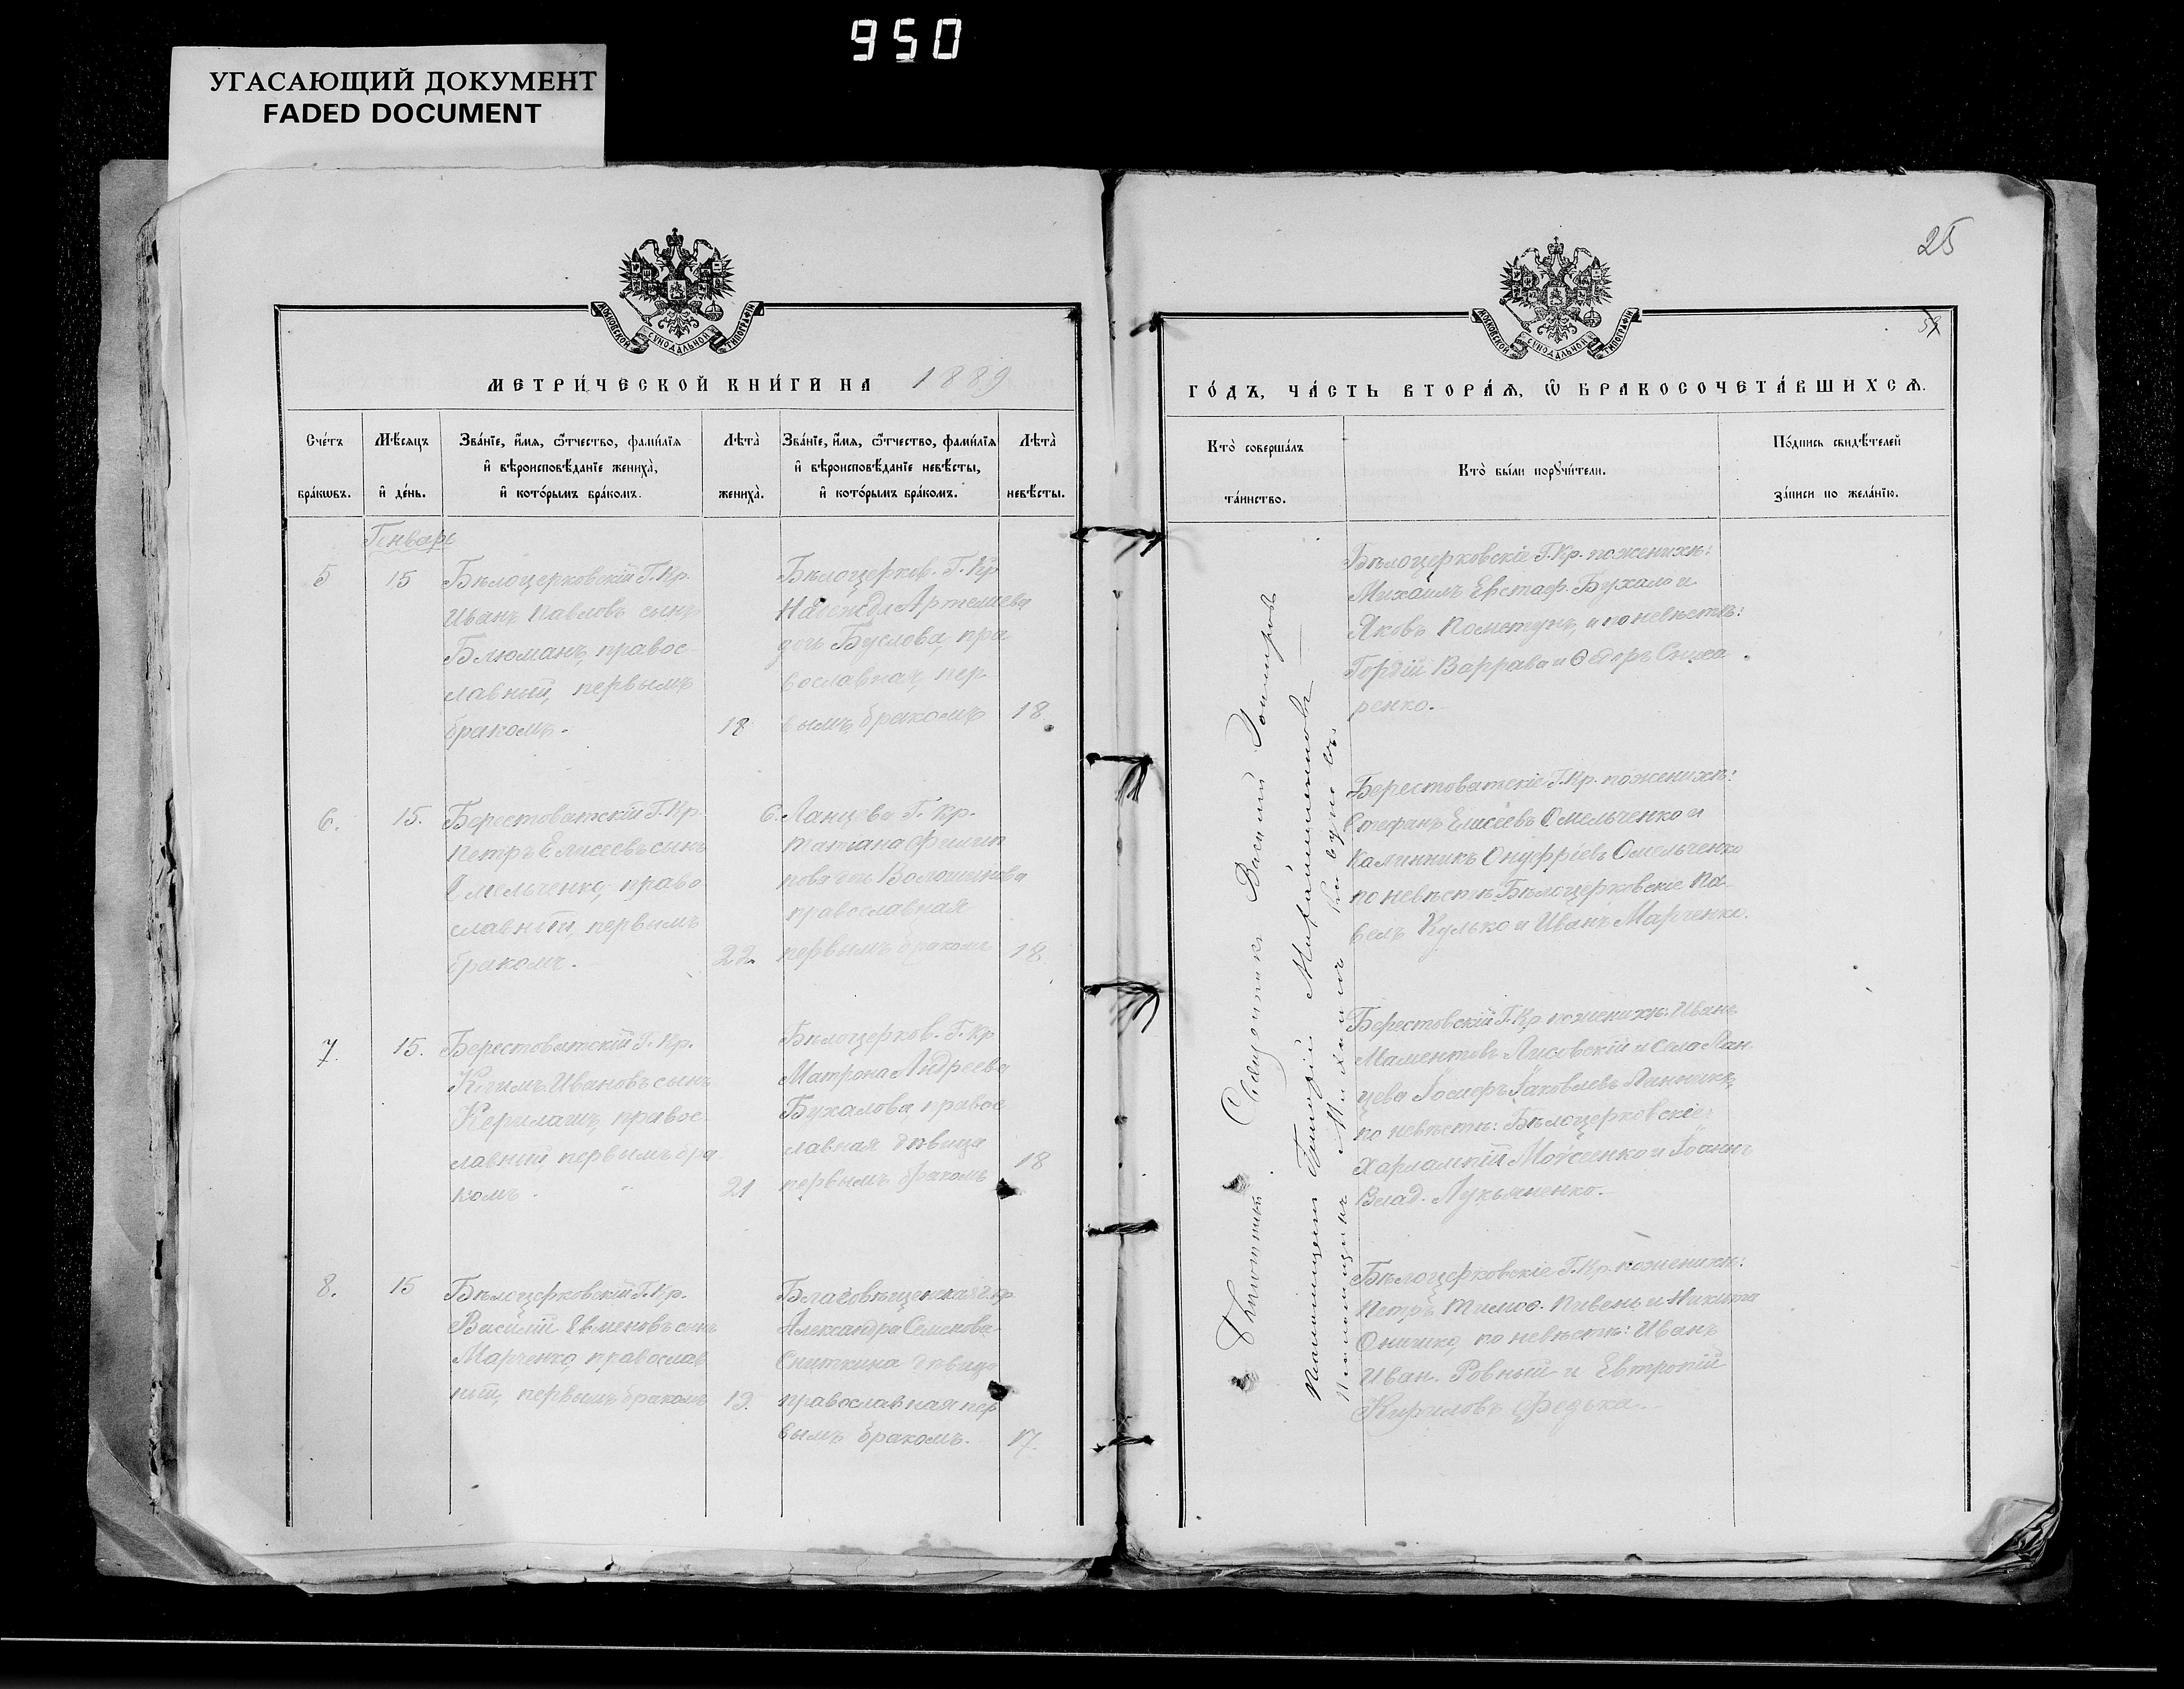 950
УГАСАЮЩИЙ ДОКУМЕНТ
FADED DOCUMENT
25
МОСКОВСКОЙ СѴНОДАЛЬНОЙ ТИПОГРАФІИ
МОСКОВСКОЙ СѴНОДАЛЬНОЙ ТИПОГРАФІИ
МЕТРИ́ЧЕСКОЙ КНИ́ГИ НА 1889
ГО́ДЪ, ЧА́СТЬ ВТОРА́Я, Ѿ БРАКОСОЧЕТА́ВШИХСЯ.
Сче́тъ
бра́кѡвъ.
Мѣ́сяцъ
и де́нь.
Зва́нїе, и́мя, ѻ́тчество, фами́лїя
и вѣроисповѣ́данїе жениха̀,
и кото́рымъ бра́комъ.
Лѣта̀
жениха̀.
Зва́нїе, и́мя, ѻ́тчество, фами́лїя
и вѣроисповѣ́данїе невѣ́сты,
и кото́рымъ бра́комъ.
Лѣта̀
невѣ́сты.
Кто̀ соверша́лъ
та́инство.
Кто̀ бы́ли порꙋчи́тели.
По́дпись свидѣ́телей
за́писи по жела́нїю.
Генварь
5
15
Бѣлоцерковскій Г. Кр.
Иванъ Павловъ сынъ
Блюманъ, правос-
лавный, первымъ
бракомъ.
18
Бѣлоцерков. Г. Кр.
Надежда Артемiева
дочь Буслова, пра
вославная, пер
вымъ бракомъ
18
Бѣлоцерковскіе Г. Кр. по женихѣ:
Михаилъ Евстаф. Бухало и
Яковъ Пометунъ, и по невѣстѣ:
Гордій Варрава и Ѳедоръ Снига
ренко.
6.
15.
Берестоватскій Г. Кр.
Петръ Елисеевъ сынъ
Омельченко, право
славный, первымъ
бракомъ.
22.
С. Ланцева Г. Кр.
Татіана Филип
пова дочь Волошинова
православная
первымъ бракомъ
18
Берестоватскіе Г. Кр. по женихѣ:
Стефанъ Елисѣевъ Омельченко и
Калинникъ Онуфріевъ Омельченко
по невѣстѣ: Бѣлоцерковскіе Па-
велъ Кулько и Иванъ Марченко.
7.
15.
Берестоватскій Г. Кр.
Ивановъ сынъ
правос-
лавный первымъ бра
комъ.
21
Бѣлоцерков. Г. Кр.
Матрона Андреева
Бухалова, правос
лавная дѣвица
первымъ бракомъ
18
Берестовскій Г. Кр. по женихѣ: Иванъ
Маментовъ Лисовскій и села Лан-
цева Іосифъ Іаковлевъ
по невѣстѣ: Бѣлоцерковскіе:
Харлампій Мойсеенко и Іоаннъ
Влад. Лукьяненко.
8.
15
Бѣлоцерковскій Г. Кр.
Василій сынъ
Марченко, православ
ный, первымъ бракомъ
19.
Благовѣщенская Г. Кр
Александра Семенова
Сниткина дѣвица
православная пер
вымъ бракомъ.
17.
Бѣлоцерковскіе Г. Кр. по женихѣ:
Петръ Тимоѳ. Пивень и Никита
Онишко, по невѣстѣ: Иванъ
Иван. Ровный и Евтропій
Кириловъ Федька.
Священникъ Василій
Григорій
Михаилъ